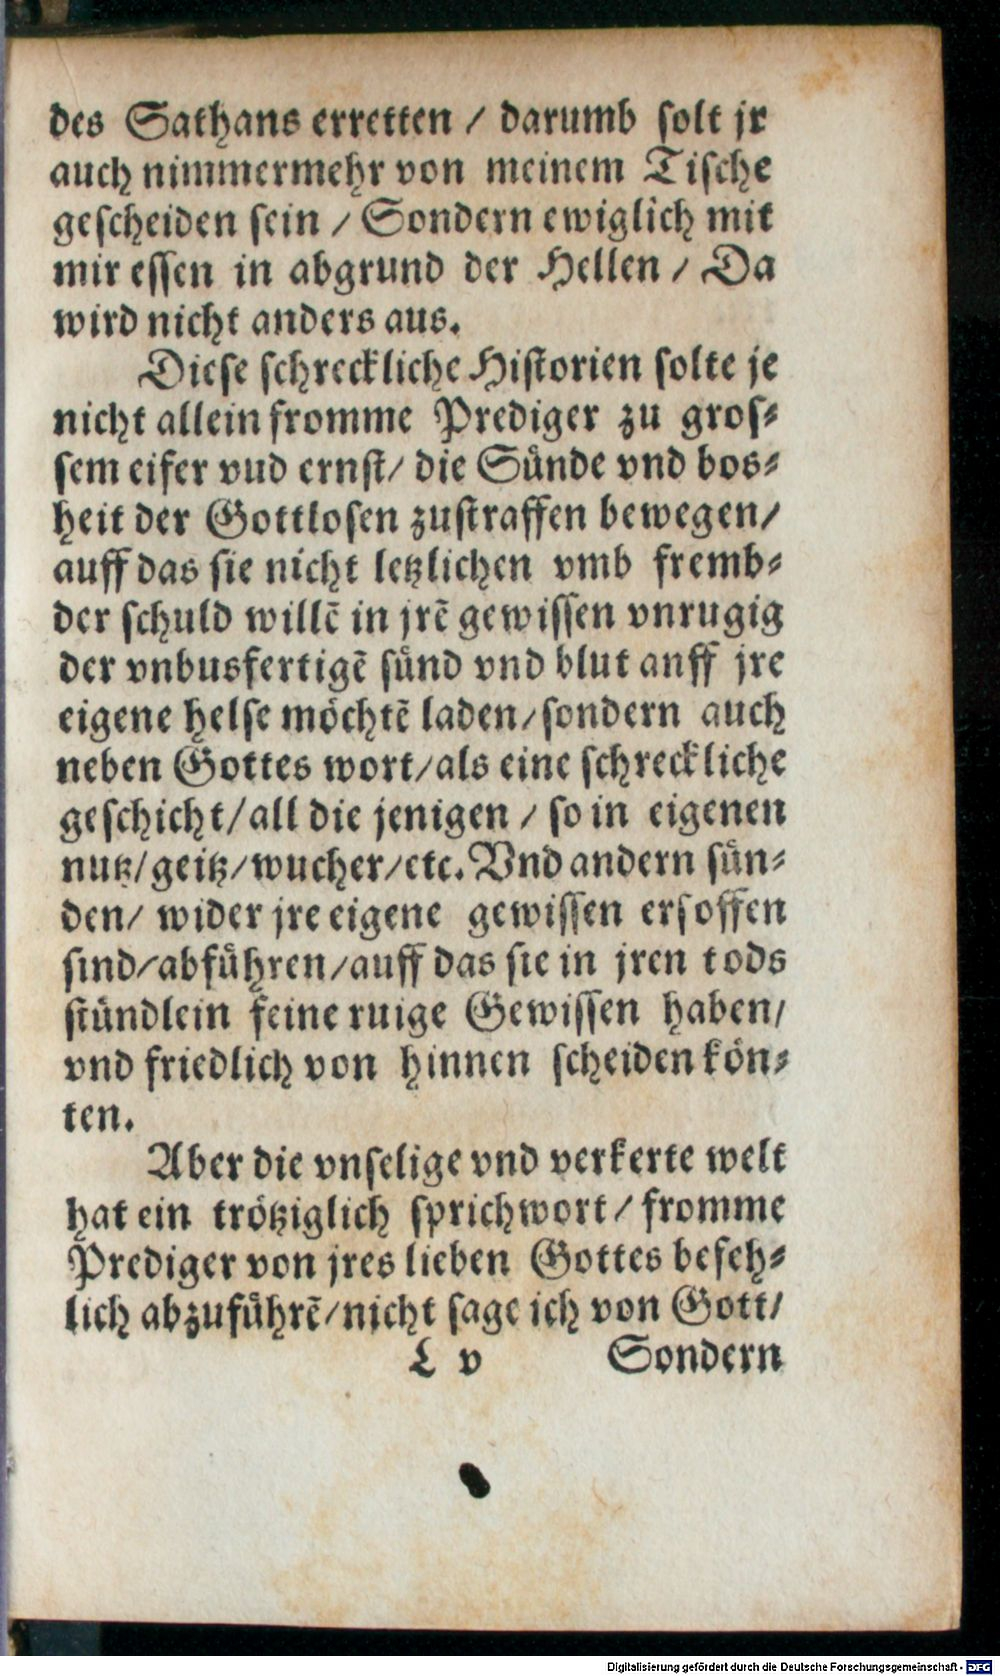 des Sathans erretten / darumb solt jr
auch nimmermehr von meinem Tische
gescheiden sein / Sondern ewiglich mit
mir essen in abgrund der Hellen / Da
wird nicht anders aus.
Diese schreckliche Historien solte je
nicht allein fromme Prediger zu gros-
sem eifer vud ernst / die Sünde vnd bos-
heit der Gottlosen zustraffen bewegen /
auff das sie nicht letzlichen vmb fremb-
der schuld willē in jrē gewissen vnrugig
der vnbusfertigē sünd vnd blut anff jre
eigene helse möchtē laden / sondern auch
neben Gottes wort / als eine schreckliche
geschicht / all die jenigen / so in eigenen
nutz / geitz / wucher / etc. Vnd andern sün-
den / wider jre eigene gewissen ersoffen
sind / abführen / auff das sie in jren tods
stündlein feine ruige Gewissen haben /
vnd friedlich von hinnen scheiden kön-
ten.
Aber die vnselige vnd verkerte welt
hat ein trötziglich sprichwort / fromme
Prediger von jres lieben Gottes befeh-
lich abzuführē / nicht sage ich von Gott /
L v Sondern
Digitalisierung gefördert durch die Deutsche Forschungsgemeinschaft - DFG